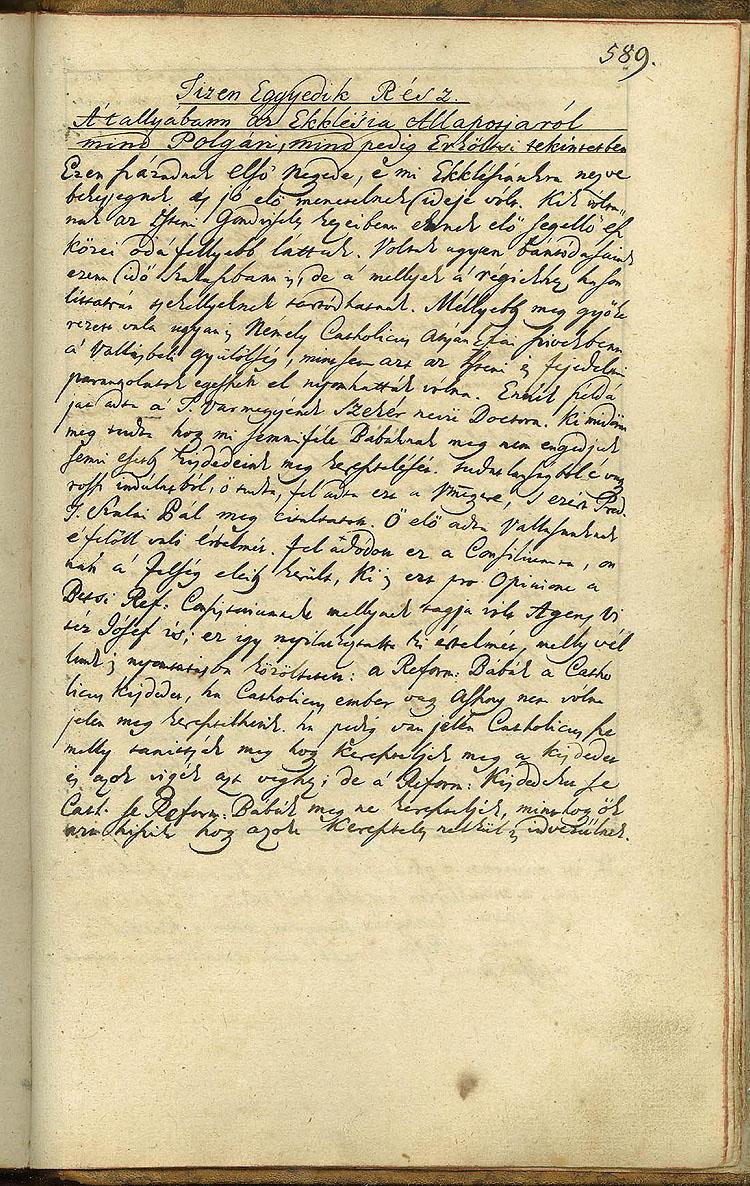 589.
Tizen Eggyedik Rész.
Átallyábann az Ekklésia Állapottjáról
mind Polgári, mind pedig Erkőltsi tekintetben
Ezen századnak első Negede, e mi Ekklésiánkra nézve
békességnek és jó elő menetelnek ideje vólt. Kik
nak az Isteni Gondviselés kezeiben ennek elő segéllő esz
közei oda fellyebb láttuk. Voltak ugyan bántódásaink
ezen idő szakaszban is, de a mellyek a régiekhez hason
líttatván tsekéllyeknek tartódhatnak. Méllyebb meg gyöke
rezett vala ugyan is Némely Catholicus Atyánkfiai szívekbenn
a Vallásbeli gyűlölség, mintsem azt az Isteni és fejedelmi
parantsolatok egészszen el nyomhatták vólna. Ennek péld
ját adta a T. Varmegyének Szeker nevű Doctora. Ki midőn
meg tudta hogy mi semmiféle Bábáknak meg nem engedjük
semmi esetb kisdedeink meg keresztelését. tudatlanságból é vag
rossz indúlatból, ő tudta, fel adta ezt a Vmgyére, s ezért Préd.
T. Kalai Pál meg citáltatott. Ő elő adta Vallásunknak
e felőtt való értelmét. Fel adódott ez a Consiliumra, on
nan a Felség eleib került, Ki is ezt pro Opinione a
Bétsi Ref: Consistoriumnak mellynek tagja vólt Agens Vi
téz Jósef is; ez így nyilatkoztatta ki értelmét, melly vél
lünk is nyomtatásba közöltetett: a Reform: Bábák a Catho
licus Kisdedet, ha Catholicus ember vag Aszszony nem vólna
jelen meg keresztelhetik. ha pedig van jelen Catholicus sze
mélly tanittsák meg hogy kereszteljék meg a kisdedet
és azok vigék azt végbe; de a Reform: Kisdedeket se
Cath. se Reform: Bábák meg ne kereszteljék, minthogy ők
azt hiszik hogy azok Keresztség nélkül is idvezülnek.